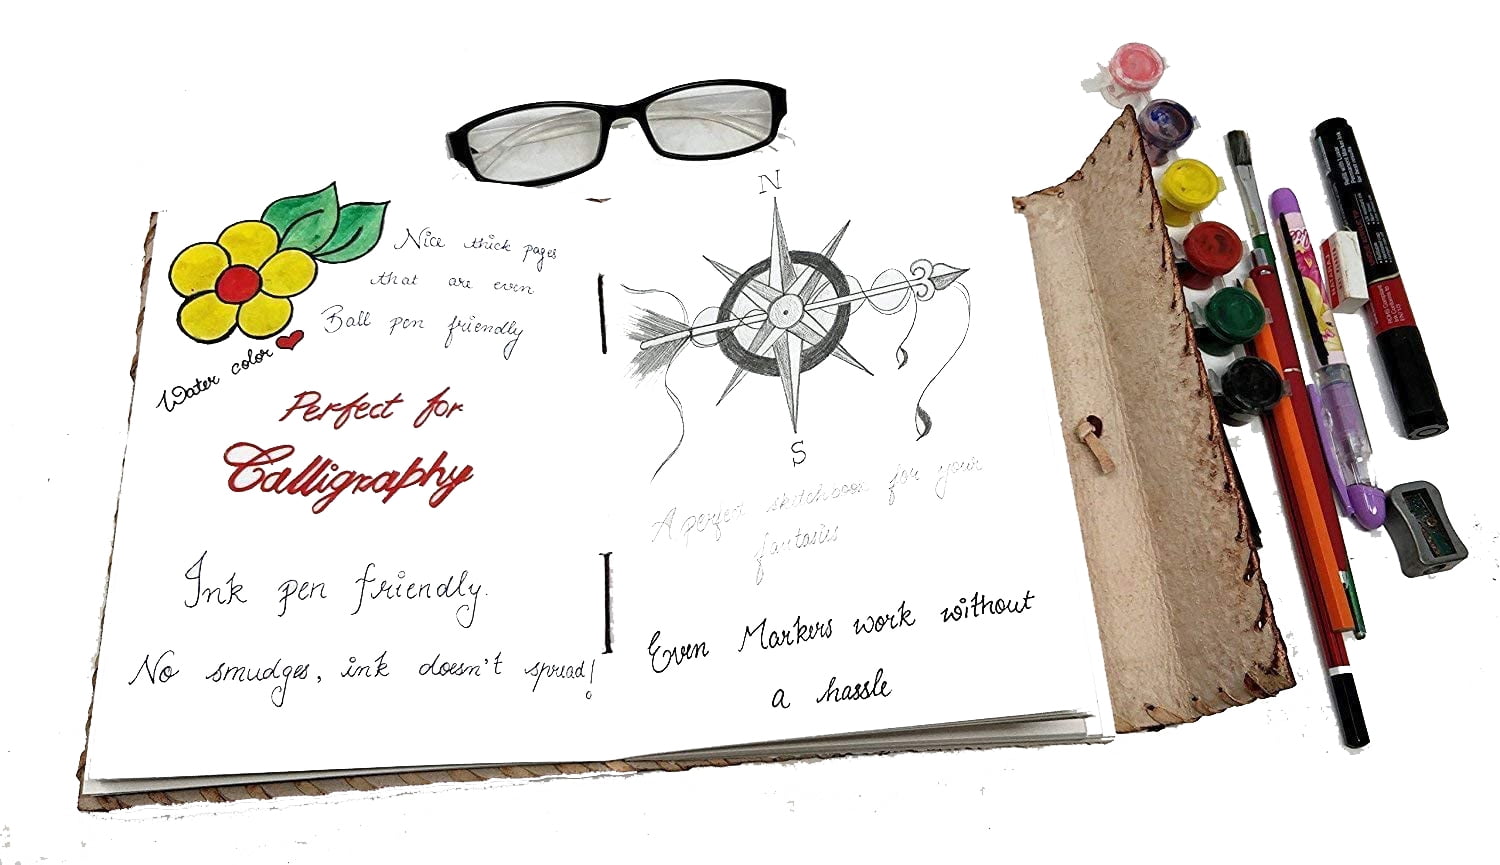 Nice thick pages
that are even
Ball pen friendly
Water color
Perfect for
Calligraphy
Ink pen friendly.
No smudges, ink doesn't spread!
N
S
A perfect sketchbook for your
fantasies
Even Markers work without
a hassle